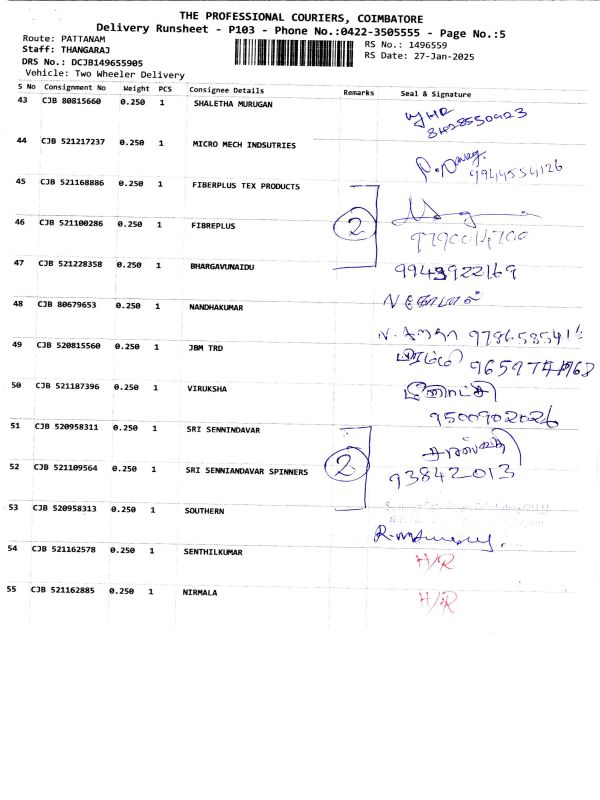 THE PROFESSIONAL COURIERS, COIMBATORE
Delivery Runsheet - P103 - Phone No.:0422-3505555 - Page No.:5
Route: PATTANAM
RS No.: 1496559
Staff: THANGARAJ
RS Date: 27-Jan-2025
DRS No.: DCJB149655905
Vehicle: Two Wheeler Delivery
S No Consignment No Weight PCS Consignee Details Remarks Seal & Signature
43 CJB 80815660 0.250 1 SHALETHA MURUGAN
8428550423
44 CJB 521217237 0.250 1 MICRO MECH INDSUTRIES
9944554126
45 CJB 521168886 0.250 1 FIBERPLUS TEX PRODUCTS
46 CJB 521100286 0.250 1 FIBREPLUS 2
47 CJB 521228358 0.250 1 BHARGAVUNAIDU
9943922169
48 CJB 80679653 0.250 1 NANDHAKUMAR
49 CJB 520815560 0.250 1 JBM TRD
50 CJB 521187396 0.250 1 VIRUKSHA
9500902026
51 CJB 520958311 0.250 1 SRI SENNINDAVAR
52 CJB 521109564 0.250 1 SRI SENNIANDAVAR SPINNERS 2 93842013
53 CJB 520958313 0.250 1 SOUTHERN
54 CJB 521162578 0.250 1 SENTHILKUMAR H/R
55 CJB 521162885 0.250 1 NIRMALA H/R